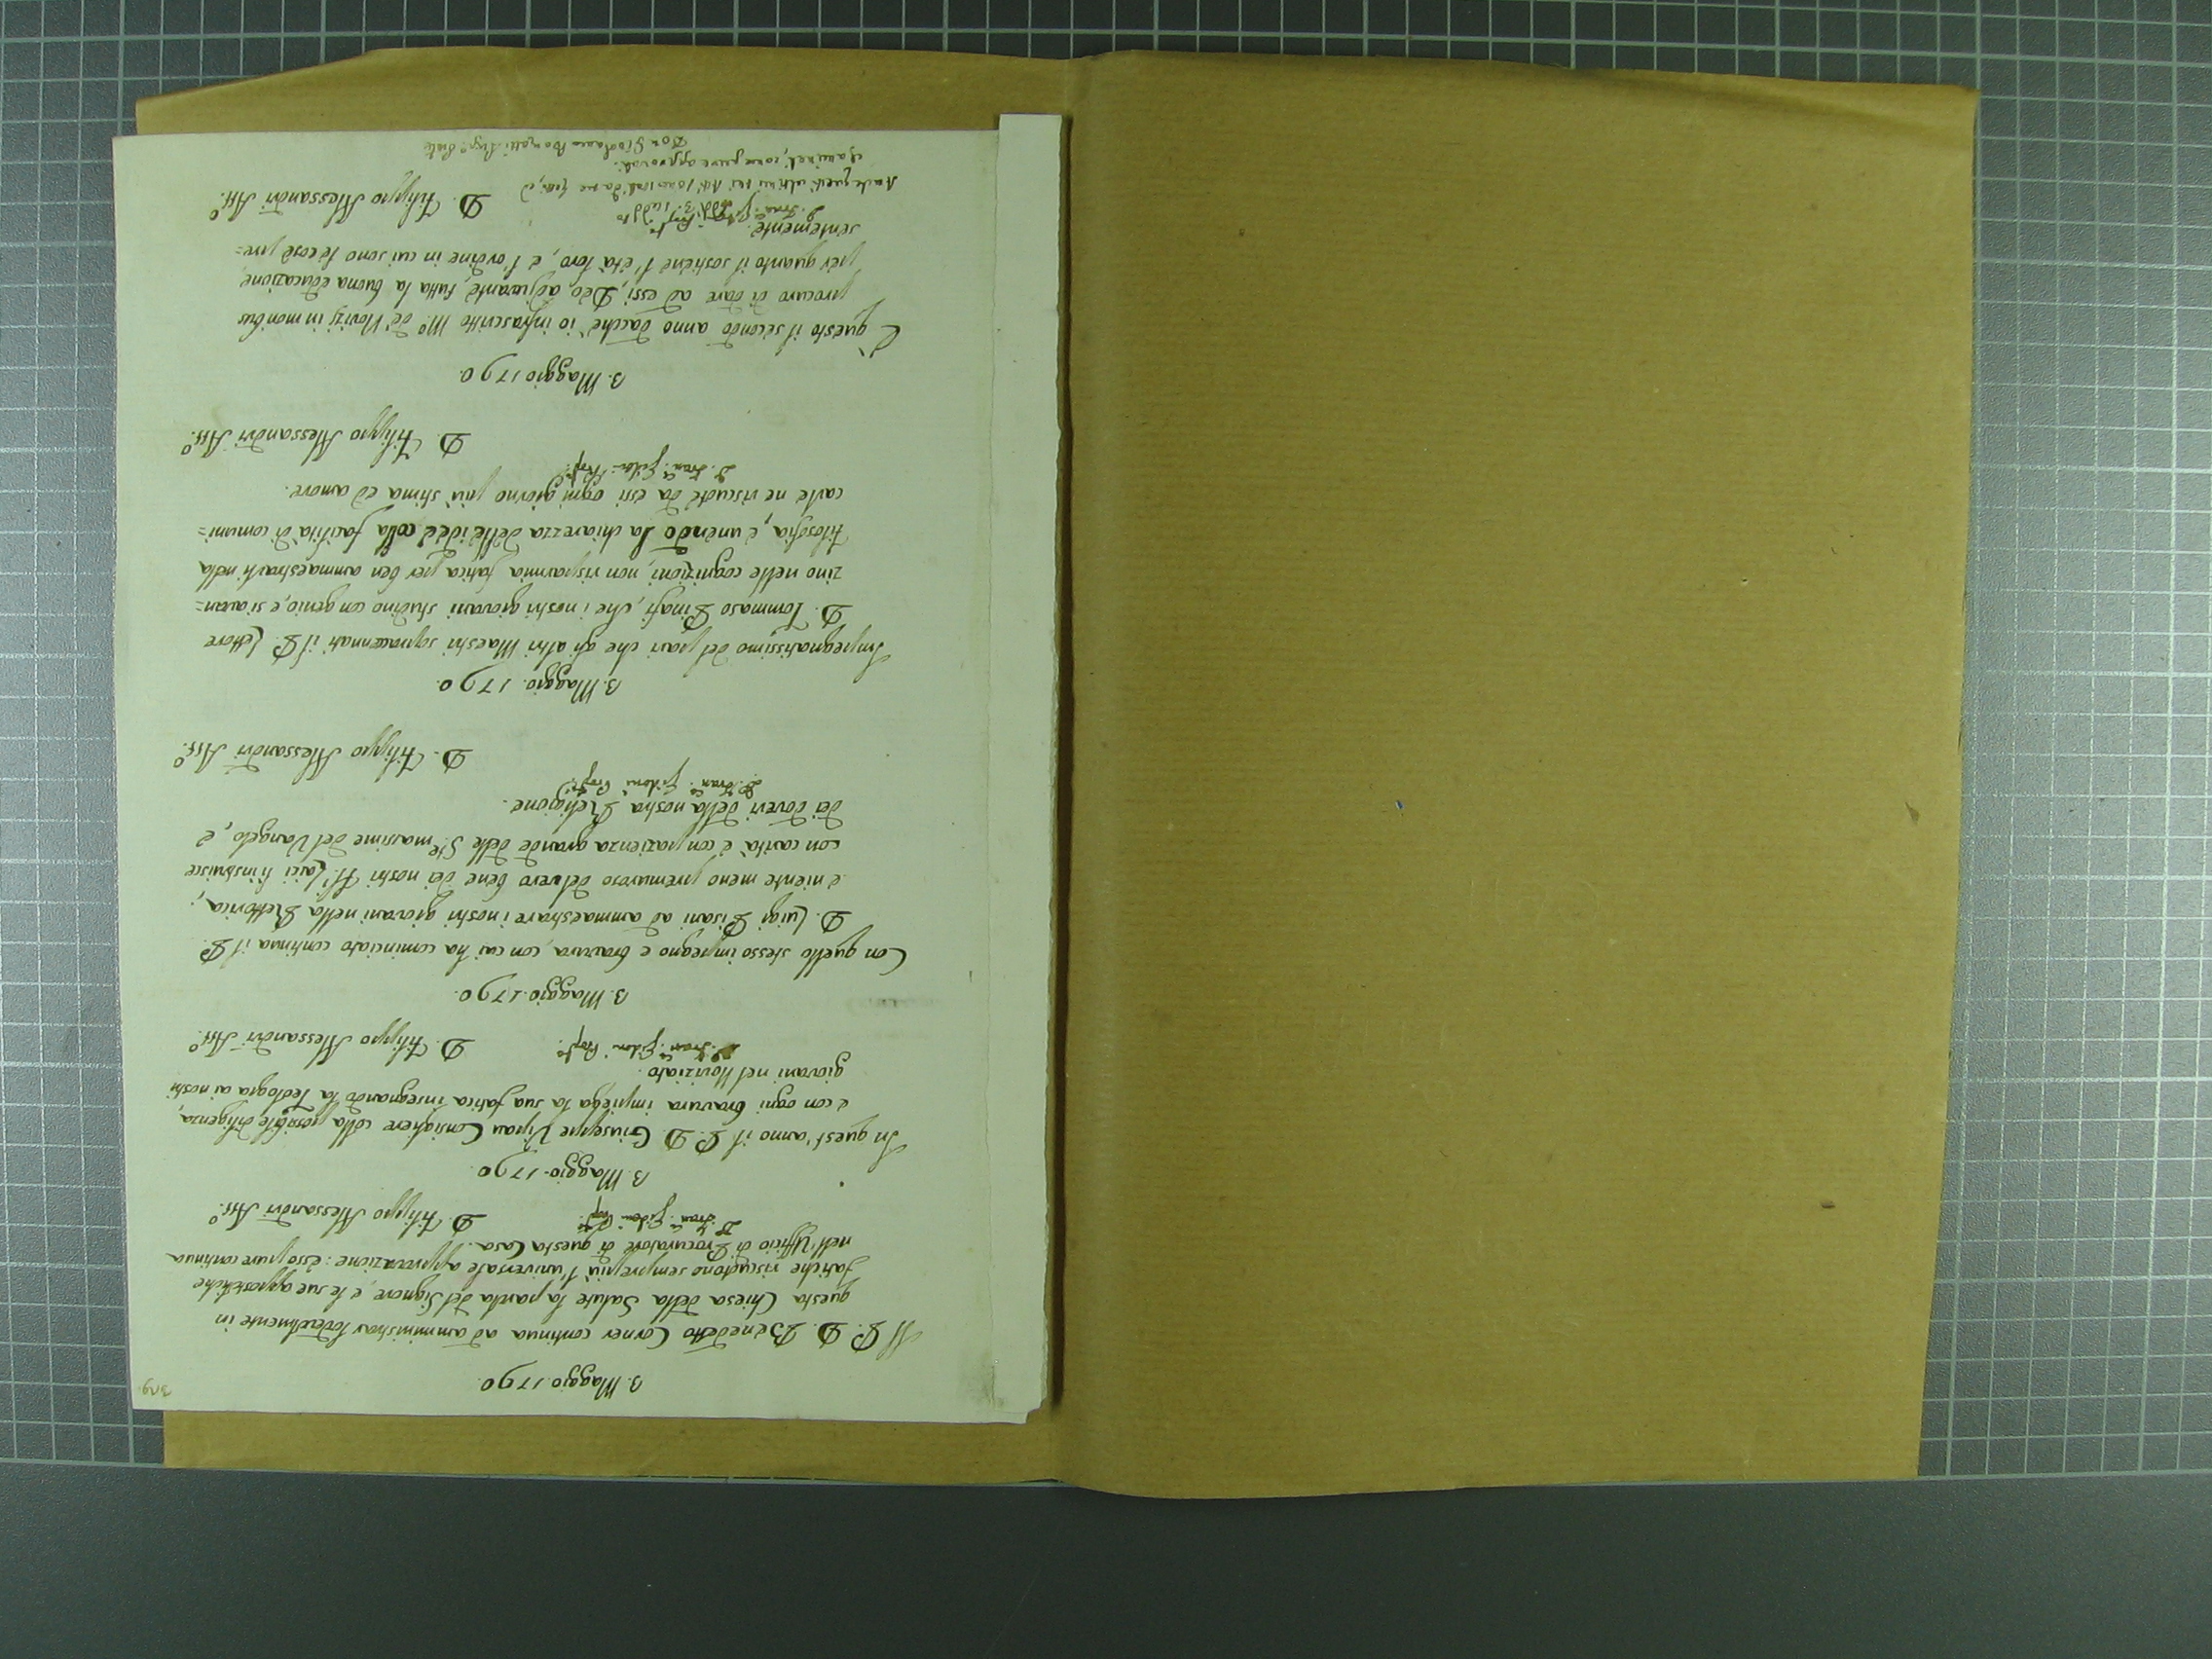 379.
3. Maggio. 1790.
Il P. D. Benedetto Corner continua ad amministrar lodevolmente in
questa Chiesa della Salute la parola del Signore, e le sue appostoliche
fatiche riscuotono semprepiù l'universale approvazione: esso pure continua
nell'Ufficio di Procuratore di questa Casa.
D. Fran.co Gidoni Prop.to
D. Filippo Alessandri Att.o
3. Maggio. 1790.
In quest'anno il P. D. Giuseppe Vipau Consigliere colla possibile diligenza,
e con ogni bravura impiega la sua fatica insegnando la Teologia ai nostri
giovani nel Noviziato.
D. Fran.co Gidoni Prop.to
D. Filippo Alessandri Att.o
3. Maggio. 1790.
Con quello stesso impegno e bravura, con cui ha cominciato continua il P.
D. Luigi Pisani ad ammaestrare i nostri giovani nella Rettorica,
e niente meno premuroso del vero bene dei nostri FF. Laici l'instruisce
con carità e con pazienza grande delle S.te massime del Vangelo, e
dei doveri della nostra Religione.
D. Fran.co Gidoni Prop.to
D. Filippo Alessandri Att.o
3. Maggio. 1790.
Impegnatissimo del pari che gli altri Maestri sopraccennati il P. Lettore
D. Tommaso Pinafi, che i nostri giovani studino con genio, e si avan=
zino nelle cognizioni, non risparmia fatica per ben ammaestrarli nella
filosofia, e unendo la chiarezza delle idee colla facilità di comuni=
carle ne riscuote da essi ogni giorno più stima ed amore.
D. Fran.co Gidoni Prop.to
D. Filippo Alessandri Att.o
3. Maggio 1790.
È questo il secondo anno dacchè io infrascritto M.o de' Novizj in moribus
procuro di dare ad essi, Deo adjuvante, tutta la buona educazione,
per quanto il sostiene l'età loro, e l'ordine in cui sono le cose pre=
sentemente.
D. Fran.co Gidoni Prop.to
D. Filippo Alessandri Att.o
Anche questi ultimi sei Atti sono stati da me letti, e
esaminati, come pure approvati.
Don Girolamo Bonzatti